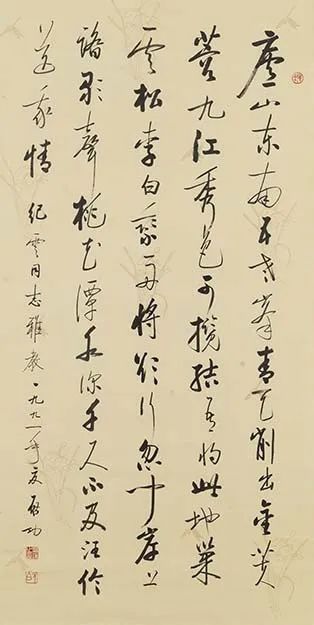 廬山东南五老峯青天削出金芙
蓉九江秀色可攬結吾将此地巢
雲松李白乘舟将欲行忽闻岸上
踏歌聲桃花潭水深千尺不及汪伦
送我情 紀雲同志雅教 一九九一年夏 启功